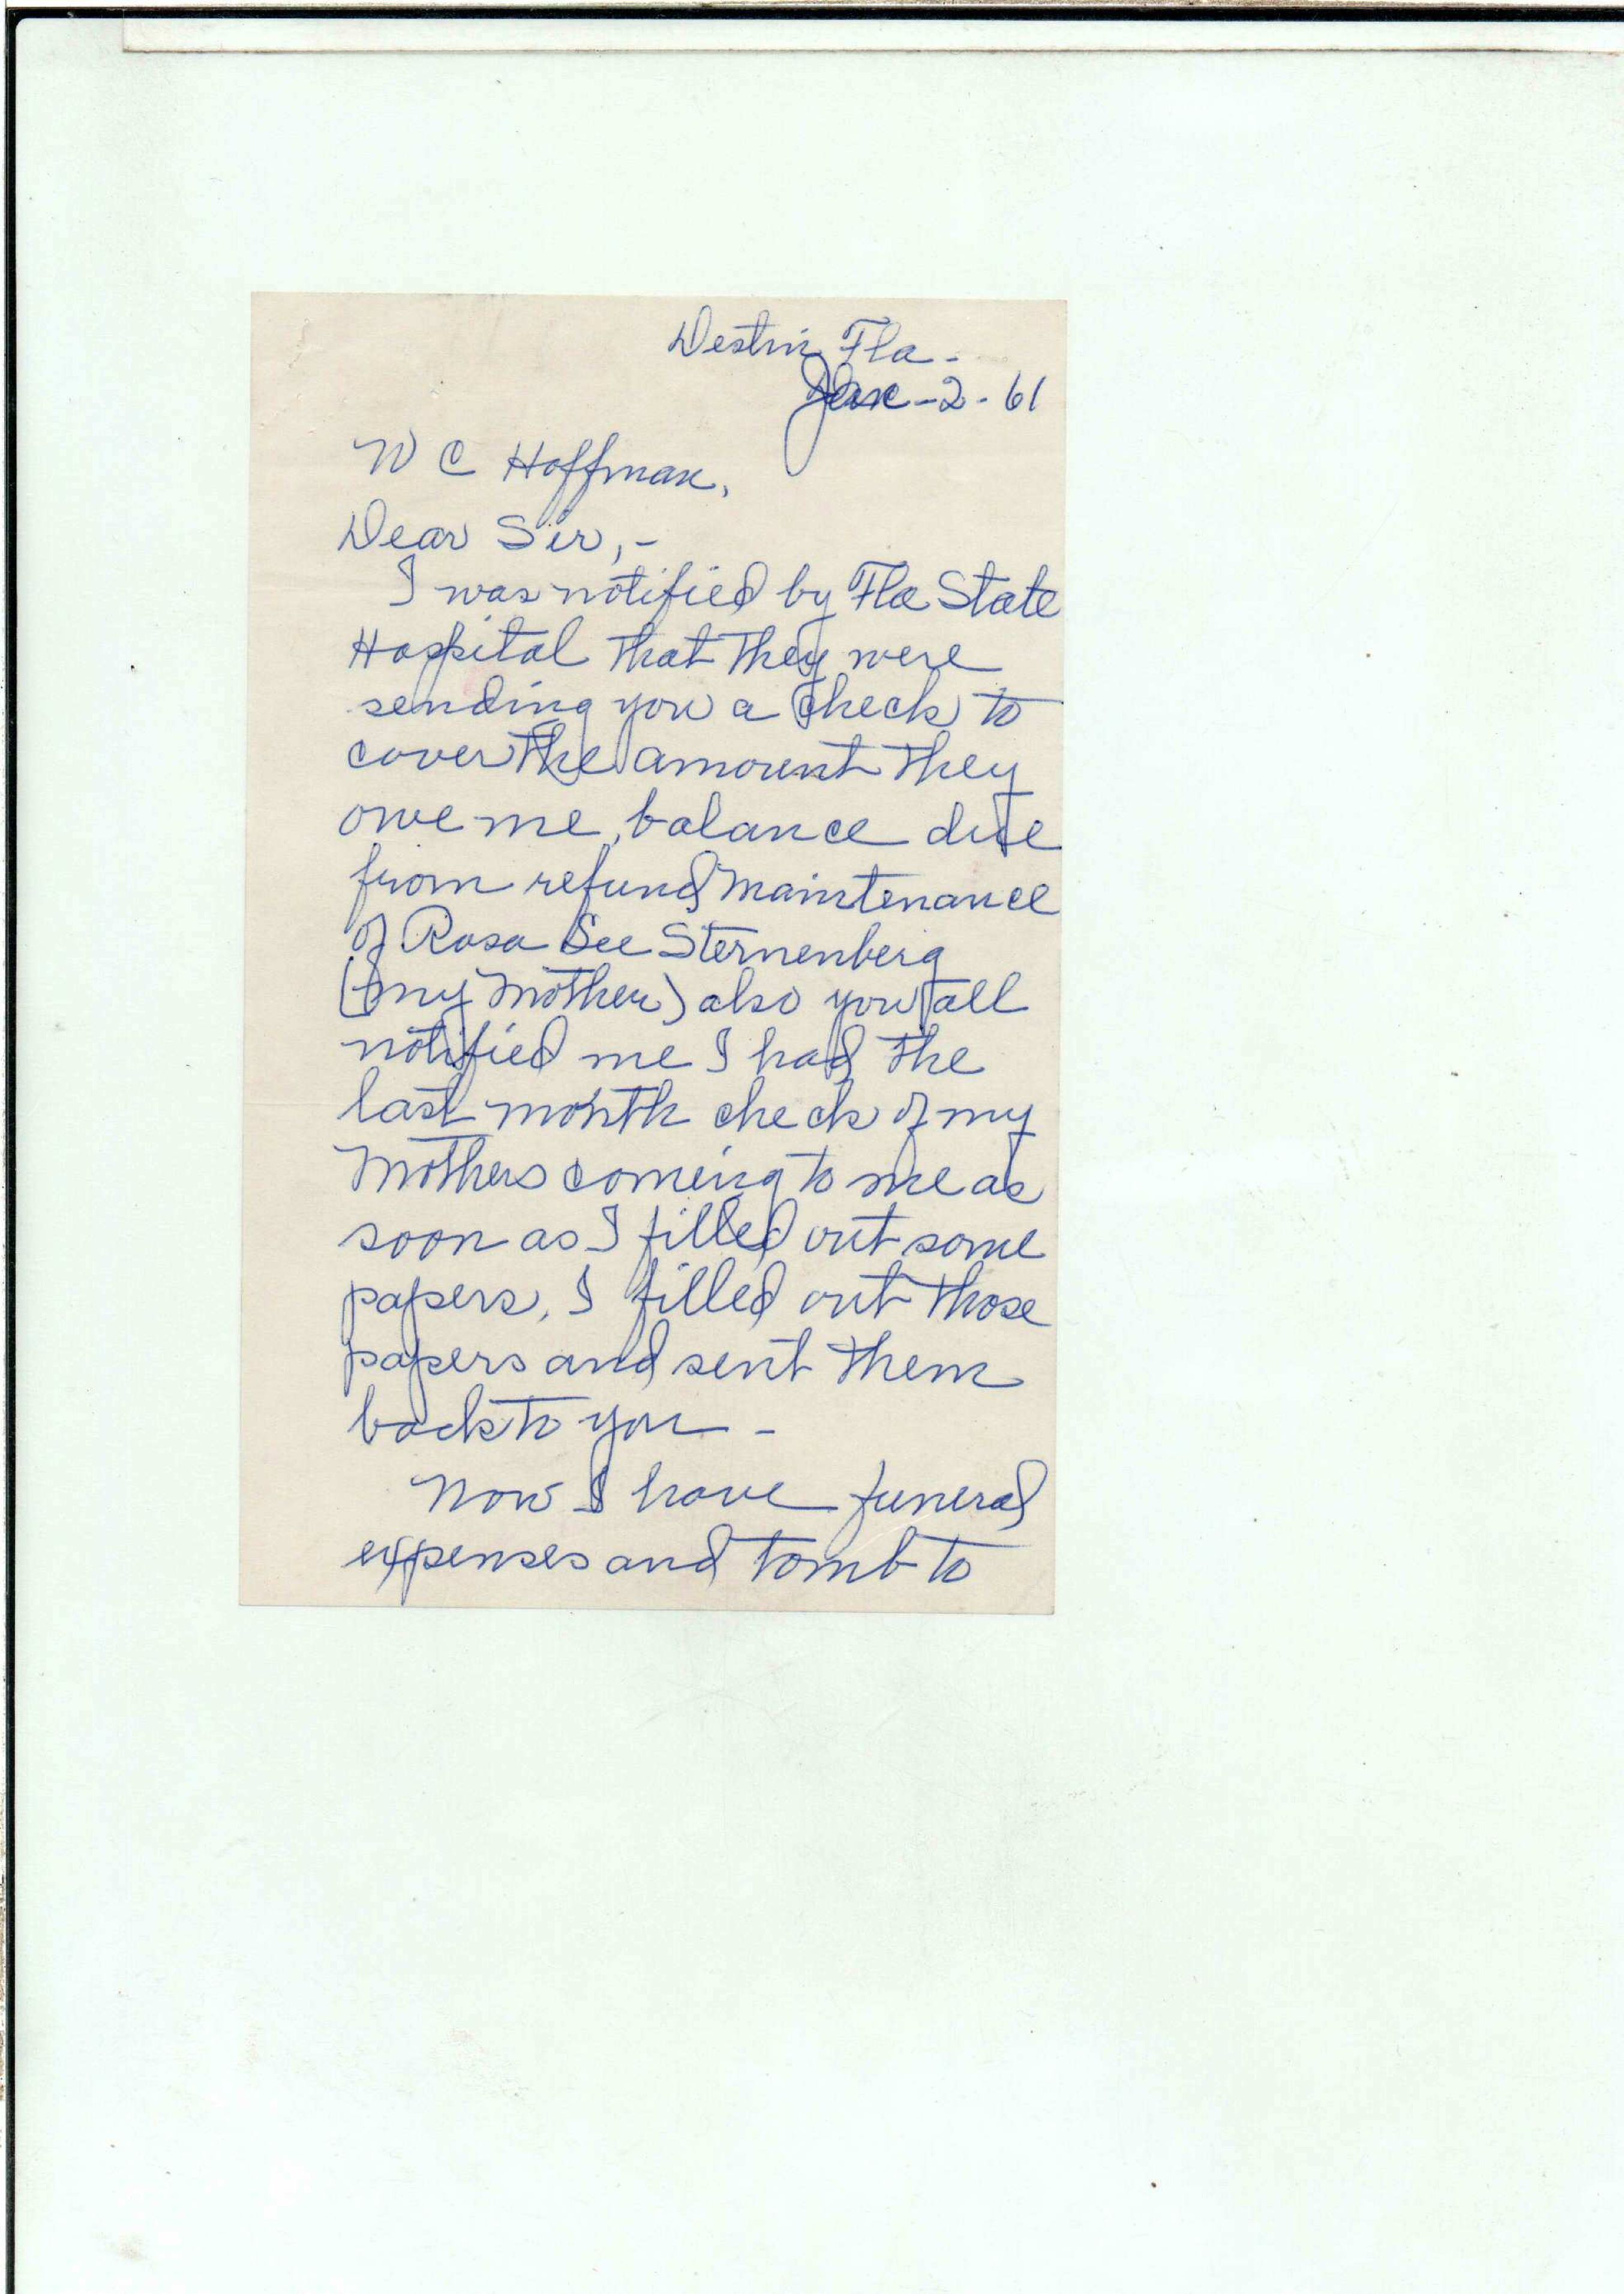 Destin, Fla -
Jan - 2 - 61
W C Hoffman,
Dear Sir, -
I was notified by Fla State
Hospital that they were
sending you a check to
cover the amount they
owe me, balance due
from refund maintenance
of Rosa See Sternenberg
(my mother) also you all
notified me I had the
last month check of my
Mothers coming to me as
soon as I filled out some
papers, I filled out those
papers and sent them
back to you -
Now I have funeral
expenses and tomb to